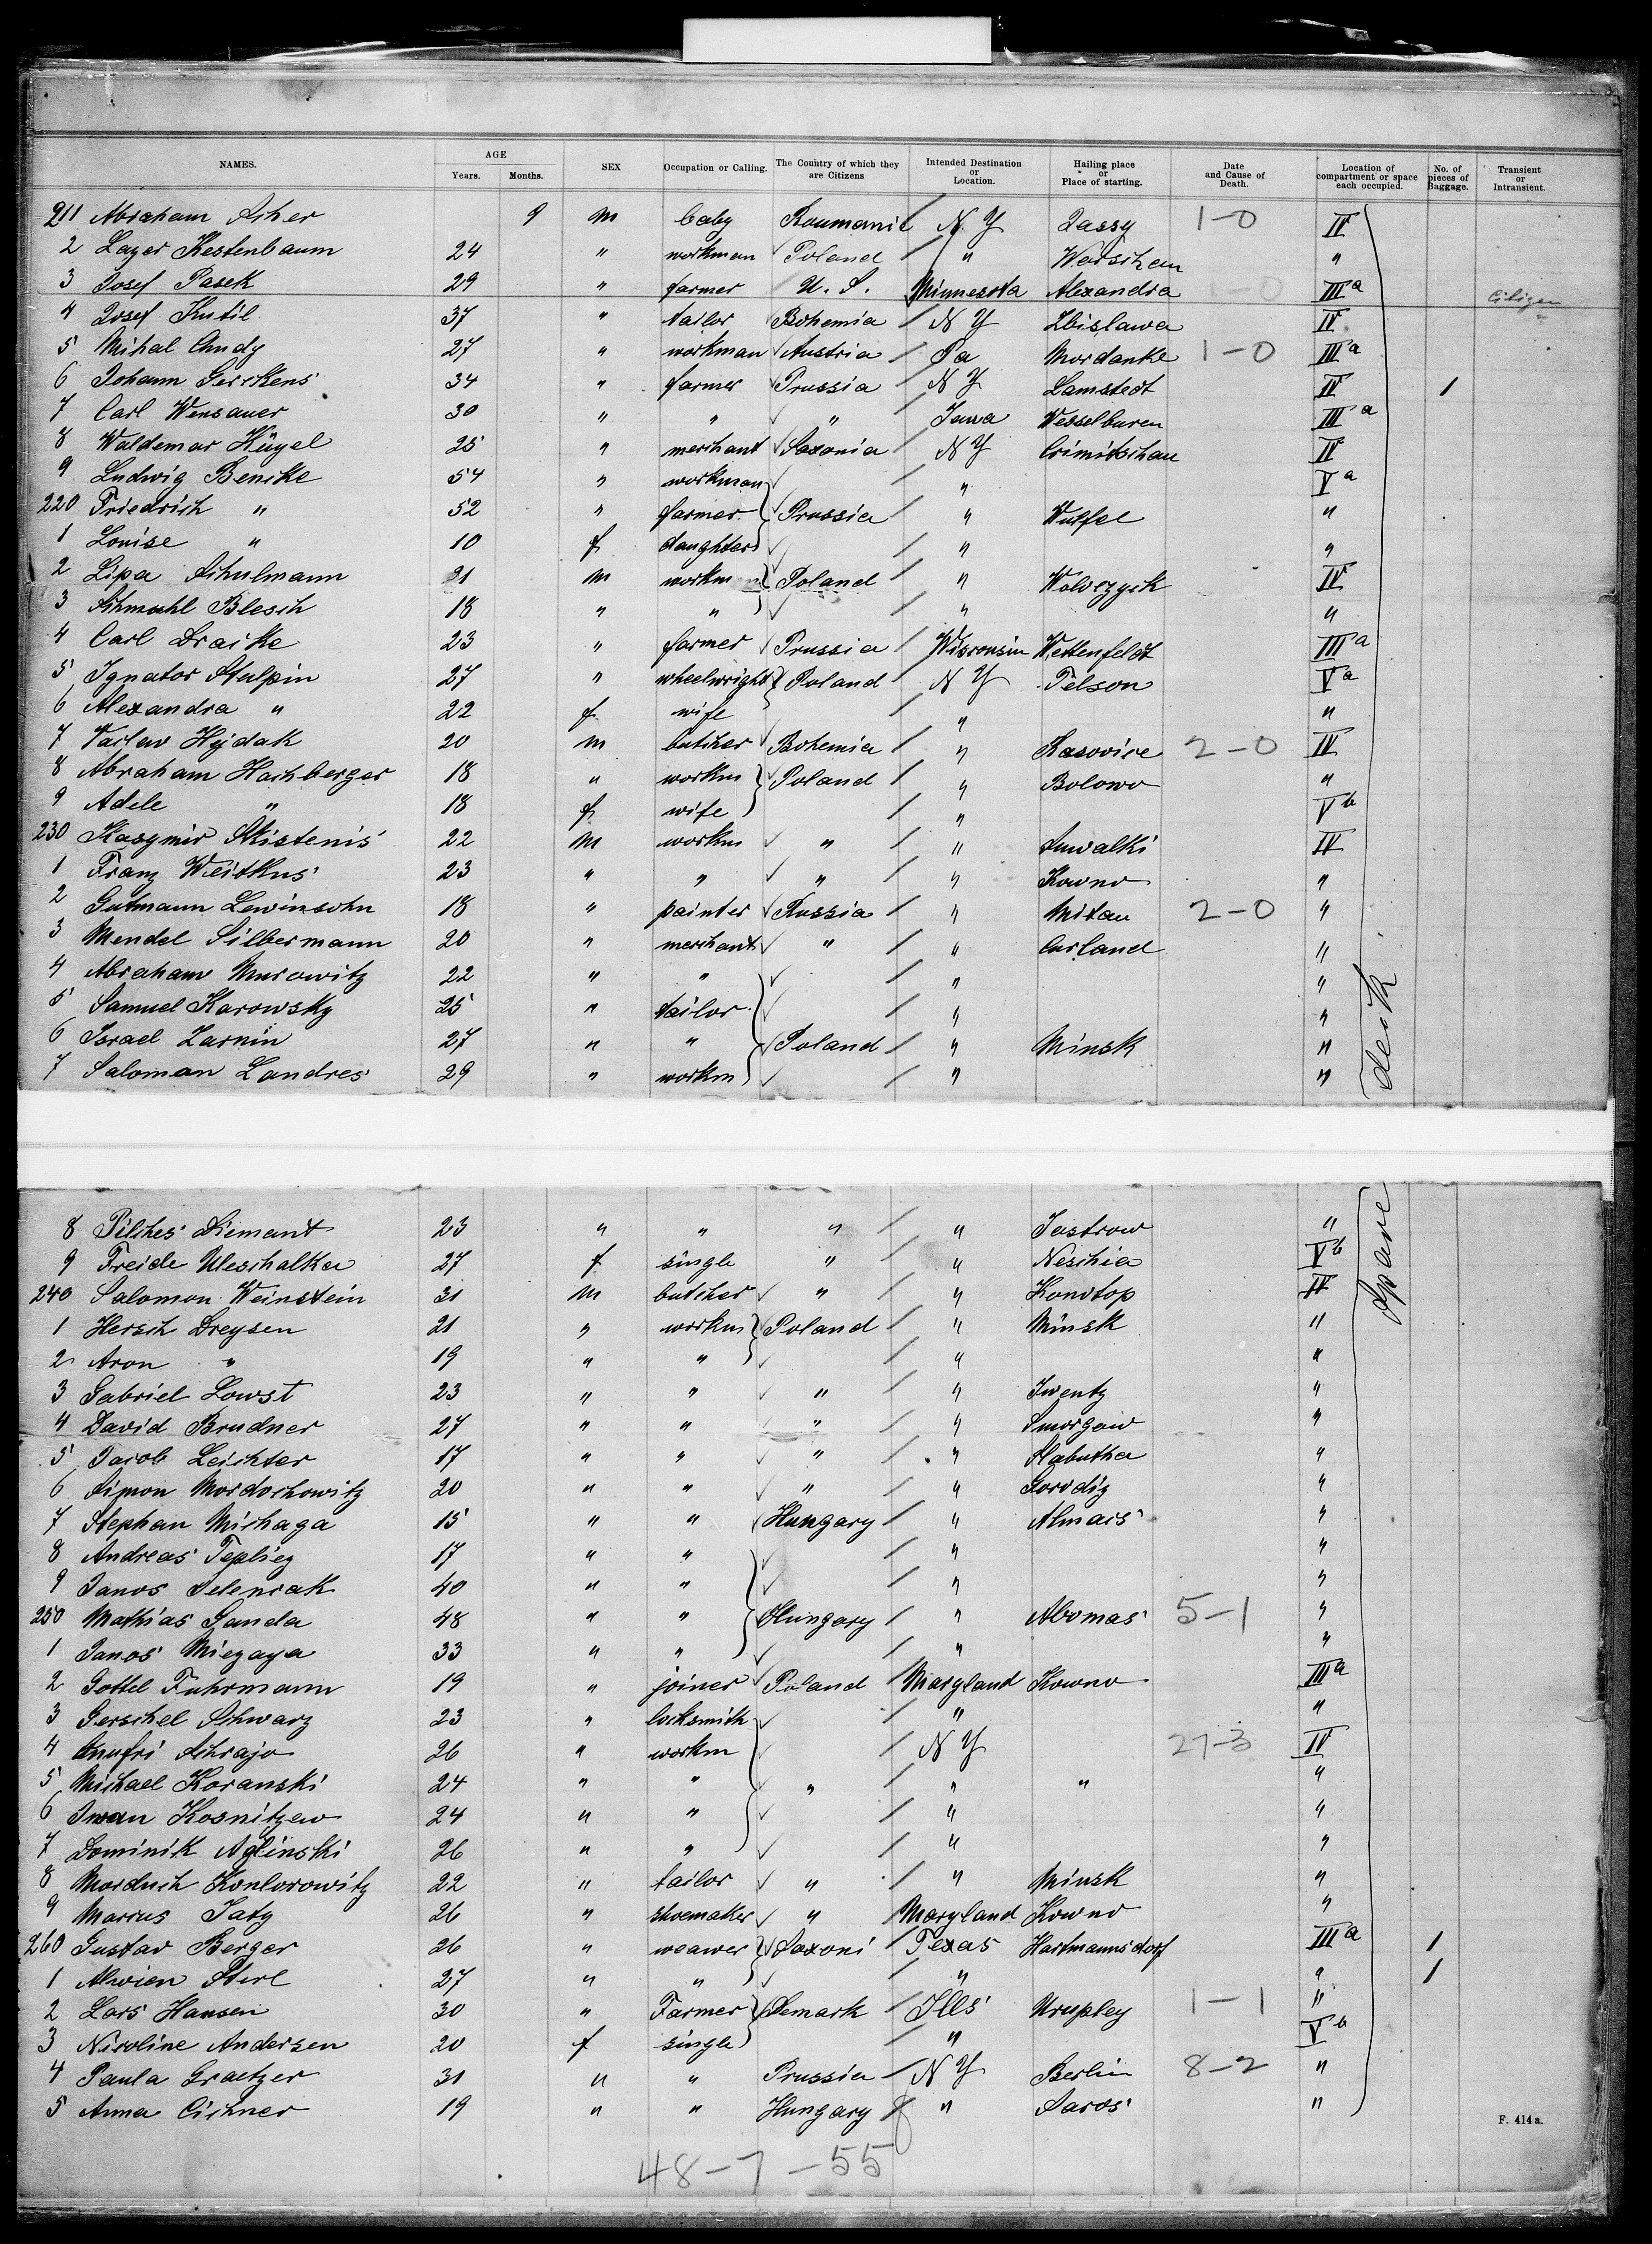 NAMES. AGE Years. Months. SEX Occupation or Calling. The Country of which they are Citizens Intended Destination or Location. Hailing place or Place of starting. Date and Cause of Death. Location of compartment or space each occupied. No. of pieces of Baggage. Transient or Intransient.
211 Abraham Asher 9 m baby Roumanie N Y Jassy 1-0 IV
2 Lazer Kestenbaum 24 " workman Poland " Warschau "
3 Josef Pasek 29 " farmer U. S. Minnesota Alexandria 0 IIIa Citizen
4 Josef Kutil 37 " tailor Bohemia N Y Zbislawa IV
5 Mihal Andy 27 " workman Austria Pa Mordanke 1-0 IIIa
6 Johann Gerckens 34 " farmer Prussia N Y Lamstedt IV 1
7 Carl Wensauer 30 " " " Iowa Wesselburen IIIa
8 Waldemar Kügel 25 " merchant Saxonia N Y Crimitschau IV
9 Ludwig Benike 54 " workman " Va
220 Friedrich " 52 " farmer Prussia " Wulfel "
1 Louise " 10 f daughter " "
2 Lipa Schulmann 21 m workman Poland " Wolvezyck IV
3 Schmuhl Blesch 18 " " " "
4 Carl Dracke 23 " farmer Prussia Wisconsin Wettenfeldt IIIa
5 Ignator Stulpin 27 " wheelwright Poland N Y Telson Va
6 Alexandra " 22 f wife " "
7 Vaclav Hejdak 20 m butcher Bohemia " Kasovice 2-0 IV
8 Abraham Hachberger 18 " workm Poland " Bolowo "
9 Adele " 18 f wife " Vb
230 Kasymir Skistenis 22 m workm " " Suwalki IV
1 Franz Weitkus 23 " " " " Kowno "
2 Gutmann Lewinsohn 18 " painter Russia " Mitau 2-0 "
3 Mendel Silbermann 20 " merchant " " Curland "
4 Abraham Murowitz 22 " " " "
5 Samuel Karowsky 25 " tailor " "
6 Israel Zarnin 27 " " Poland " Minsk "
7 Saloman Landres 29 " workm " "
deck
8 Pilches Diemant 23 " " " " Jastrow "
9 Freide Uleschalka 27 f single " " Neschia Vb
240 Salomon Weinstein 31 m butcher " " Konotop IV
1 Hersch Dreysen 21 " workm Poland " Minsk "
2 Aron " 19 " " " "
3 Gabriel Lowst 23 " " " " Iwentz "
4 David Brudner 27 " " " " Smorgow "
5 Jacob Leichter 17 " " " " Slabutha "
6 Simon Mordochowitz 20 " " " " Gorodiz "
7 Stephan Michaga 15 " " Hungary " Almais "
8 Andreas Tepliez 17 " " " "
9 Janos Selencak 40 " " " "
250 Mathias Ganda 48 " " Hungary " Abomas 5-1 "
1 Janos Miezaya 33 " " " "
2 Gottel Fuhrmann 19 " joiner Poland Maryland Kowno IIIa
3 Gerschel Schwarz 23 " locksmith " "
4 Onufri Schrajo 26 " workm N Y 27-3 IV
5 Michael Koranski 24 " " " " " "
6 Iwan Kosnitzew 24 " " " "
7 Dominik Aglinski 26 " " " "
8 Morduch Konlorowitz 22 " tailor " " Minsk "
9 Marcus Saty 26 " shoemaker " Maryland Kowno "
260 Gustav Berger 26 " weawer Saxoni Texas Hartmannsdorf IIIa 1
1 Alwien Sterl 27 " " " " 1
2 Lars Hansen 30 " Farmer Demark Ills Urupley 1-1 "
3 Nicoline Andersen 20 f single " Vb
4 Paula Graetzer 31 " " Prussia N Y Berlin 8-2 "
5 Anna Cichner 19 " " Hungary " Saros "
Spare
F. 414a.
48-7-55